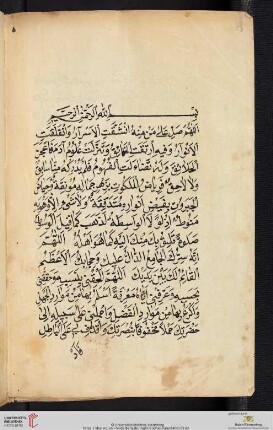 بسم الله الرحمن الرحيم
اللهم صل على من منه انشقت الاسرار وانفلقت
الانوار وفيه ارتقت الحقائق وتنزلت علوم آدم فاعجز
الخلائق وله تضاءلت الفهوم فلم يدركه منا سابق
ولا لاحق فرياض الملكوت بزهر جماله مونقة وحياض
الجبروت بفيض انواره متدفقة ولا شيء الا وهو به
منوط اذ لولا الواسطة لذهب كما قيل الموسوط
صلوة تليق بك منك اليه كما هو اهله اللهم
انه سرك الجامع الدال عليك وحجابك الاعظم
القائم لك بين يديك اللهم الحقني بنسبه وحققني
بحسبه وعرفني اياه معرفة اسلم بها من موارد الجهل
واكرع بها من موارد الفضل واحملني على سبيله الى
حضرتك حملا محفوفا بنصرتك واقذف بي على الباطل